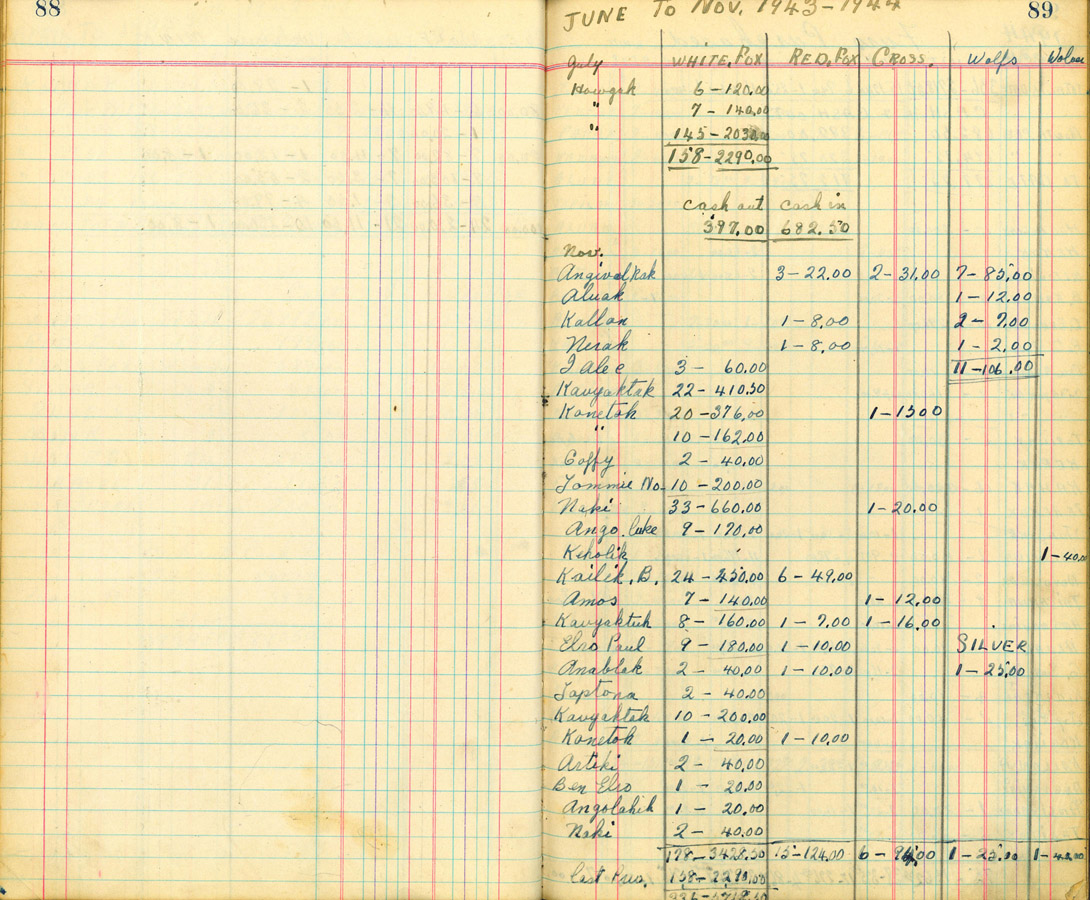 88
89
JUNE TO NOV. 1943-1944
July WHITE. FOX RED. FOX CROSS. Wolfs
Howgak 6-120.00
" 7- 140.00
" 145-2030.00
158-2290.00
cash out cash in
397.00 682.50
Nov.
Angivalrak 3-22.00 2-31.00 7-85.00
Aluak 1-12.00
Kallan 1-8.00 2-7.00
Nerak 1-8.00 1-2.00
3- 60.00 11-106.00
Kavyaktak 22-410.50
Konetok 20-376.00 1-1500
" 10-162.00
Coffy 2- 40.00
Tommie No- 10-200.00
Naki 33-660.00 1-20.00
Ango. luke 9-170.00
Keholik 1-40.00
Kailik. B. 24-450.00 6-49.00
Amos 7-140.00 1-12.00
Kavyaktuk 8-160.00 1-7.00 1-16.00
Elro Paul 9-180.00 1-10.00 SILVER
Anablak 2- 40.00 1-10.00 1-25.00
Taptona 2- 40.00
Kavyaktak 10-200.00
Konetok 1- 20.00 1-10.00
Arteki 2- 40.00
Ben Elro 1- 20.00
Angolahik 1- 20.00
Naki 2- 40.00
178-3428.50 15-124.00 6-94.00 1-25.00 1-40.00
158-2290.00